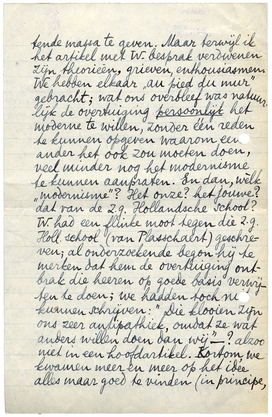 tende massa te geven. Maar terwijl ik
het artikel met W. besprak verdwenen
zijn theorieën, grieven, enthousiasmen.
We hebben elkaar "au pied du mur"
gebracht; wat ons overbleef was natuur-
lijk de overtuiging persoonlijk het
moderne te willen, zonder één reden
te kunnen opgeven waarom een
ander het ook zou moeten doen,
veel minder nog het modernisme
te kunnen aanpraten. En dan, welk
"modernisme"? Het onze? het jouwe?
dat van de z.g. Hollandsche school?
W. had een flinke moot tegen die z.g.
Holl. school (van Plasschaert) geschre-
ven; al onderzoekende begon hij te
merken dat hem de overtuiging ont-
brak die heeren op goede basis verwij-
ten te doen; we hadden toch niet
kunnen schrijven: "Die klooien zijn
ons zeer antipathiek, omdat ze wat
anders willen doen dan wij" —? alzoo
niet in een hoofdartikel. Kortom, we
kwamen meer en meer op het idee
alles maar goed te vinden (in principe,